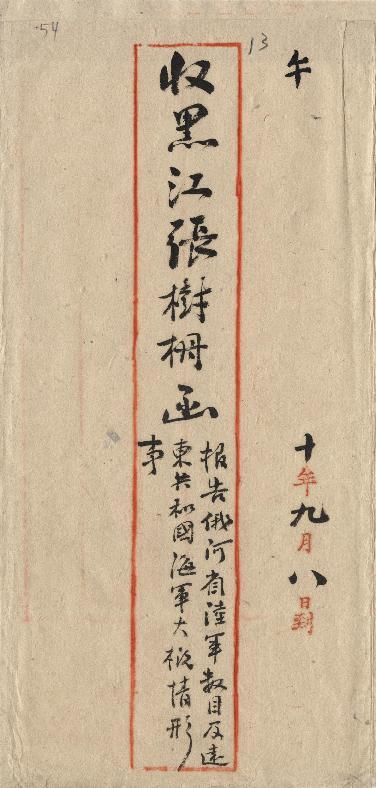 54
13
午
十年九月八日到
收黑江張樹柵函
報告俄阿省陸軍数目及遠
東共和國海軍大概情形
事